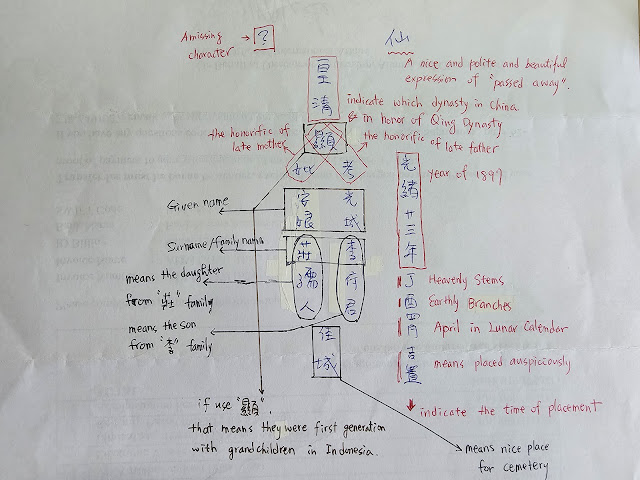 A missing
character
?
仙
A nice and polite and beautiful
expression of "passed away".
皇
清
indicate which dynasty in China
& in honor of Qing Dynasty
the honorific of
late mother
顯
the honorific of
late father
妣 考
光
緒
廿
三
年
year of 1897
Given name
安 光
娘 城
Surname/family name
莊 李
孺 府
人 君
means the daughter
from "莊" family
means the son
from "李" family
佳
城
丁 Heavenly Stems
酉 Earthly Branches
四月 April in Lunar Calendar
吉
置
means placed auspiciously
indicate the time of placement
if use "顯",
that means they were first generation
with grandchildren in Indonesia.
means nice place
for cemetery